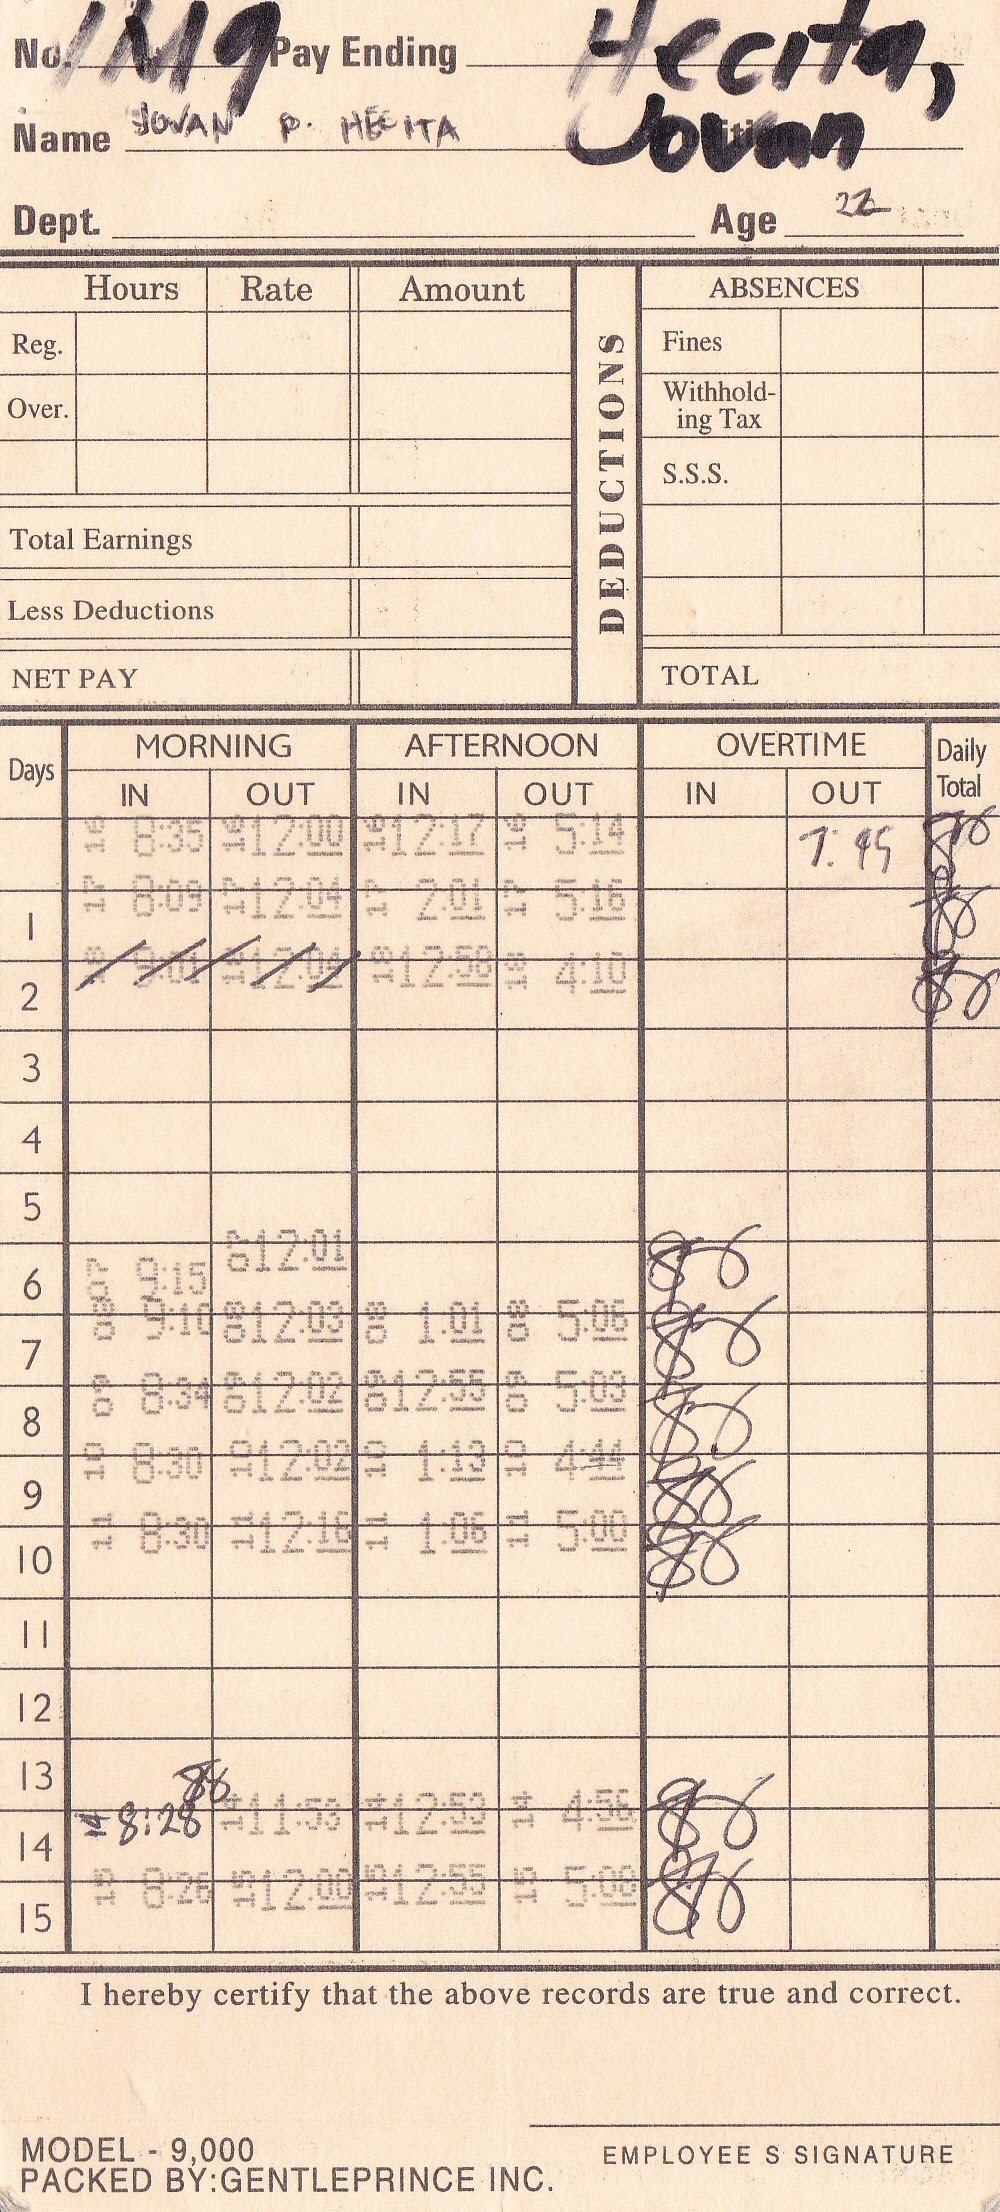 No. 1M9 Pay Ending Hecita,
Name JOVAN P. HECITA Jovan
Dept. Age 22
Hours Rate Amount DEDUCTIONS ABSENCES
Reg. Fines
Over. Withhold-
ing Tax
S.S.S.
Total Earnings
Less Deductions
NET PAY TOTAL
Days MORNING AFTERNOON OVERTIME Daily
Total
IN OUT IN OUT IN OUT
8:35 12:00 12:17 5:14 7:45
1 8:09 12:04 2:01 5:16
2 9:01 12:04 12:58 4:10
3
4
5
6 9:15 12:01
7 9:10 12:03 1:01 5:06
8 8:34 12:02 12:55 5:03
9 8:30 12:02 1:13 4:44
10 8:30 12:16 1:06 5:00
11
12
13
14 14 8:28 11:53 12:53 4:56
15 8:26 12:00 12:55 5:00
I hereby certify that the above records are true and correct.
EMPLOYEE S SIGNATURE
MODEL - 9,000
PACKED BY:GENTLEPRINCE INC.